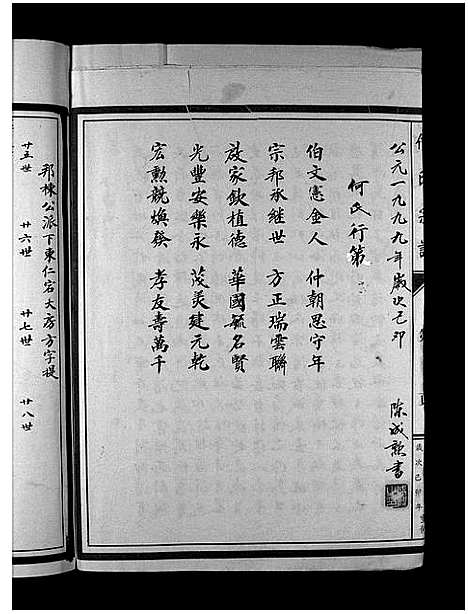 公元一九九九年歲次己卯
何氏行第
伯文憲金人 仲朝思守年
宗邦承繼世 方正瑞雲聯
放家欽植德 華國毓名賢
光豐安樂永 茂美建元乾
宏勲競煥發 孝友壽萬千
陳成勲書
歲次己卯年
邦棟公派下東仁宕大房方字提
廿五世 廿六世 廿七世 廿八世